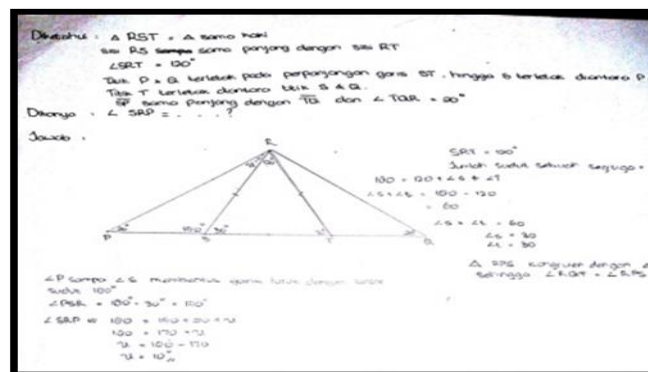 Diketahui : Δ RST = Δ sama kaki
sisi RS sama panjang dengan sisi RT
∠SRT = 120°
Titik P & Q terletak pada perpanjangan garis ST, hingga S terletak diantara P
Titik T terletak diantara titik S & Q.
SP sama panjang dengan TQ dan ∠TQR = 20°
Ditanya : ∠ SRP = . . . ?
Jawab :
R
P
S
T
Q
150°
30°
SRT = 120°
Jumlah sudut sebuah segitiga =
180 = 120 + ∠S + ∠T
∠S + ∠t = 180 - 120
= 60
∠s + ∠t = 60
∠s = 30
∠t = 30
Δ RPS kongruen dengan
sehingga ∠RQT = ∠RPS
∠P sampai ∠S membentuk garis lurus dengan
sudut 180°
∠PSR = 180° - 30° = 150°
∠SRP = 180 = 150 + 20 + x
180 = 170 + x
x = 180 - 170
x = 10°